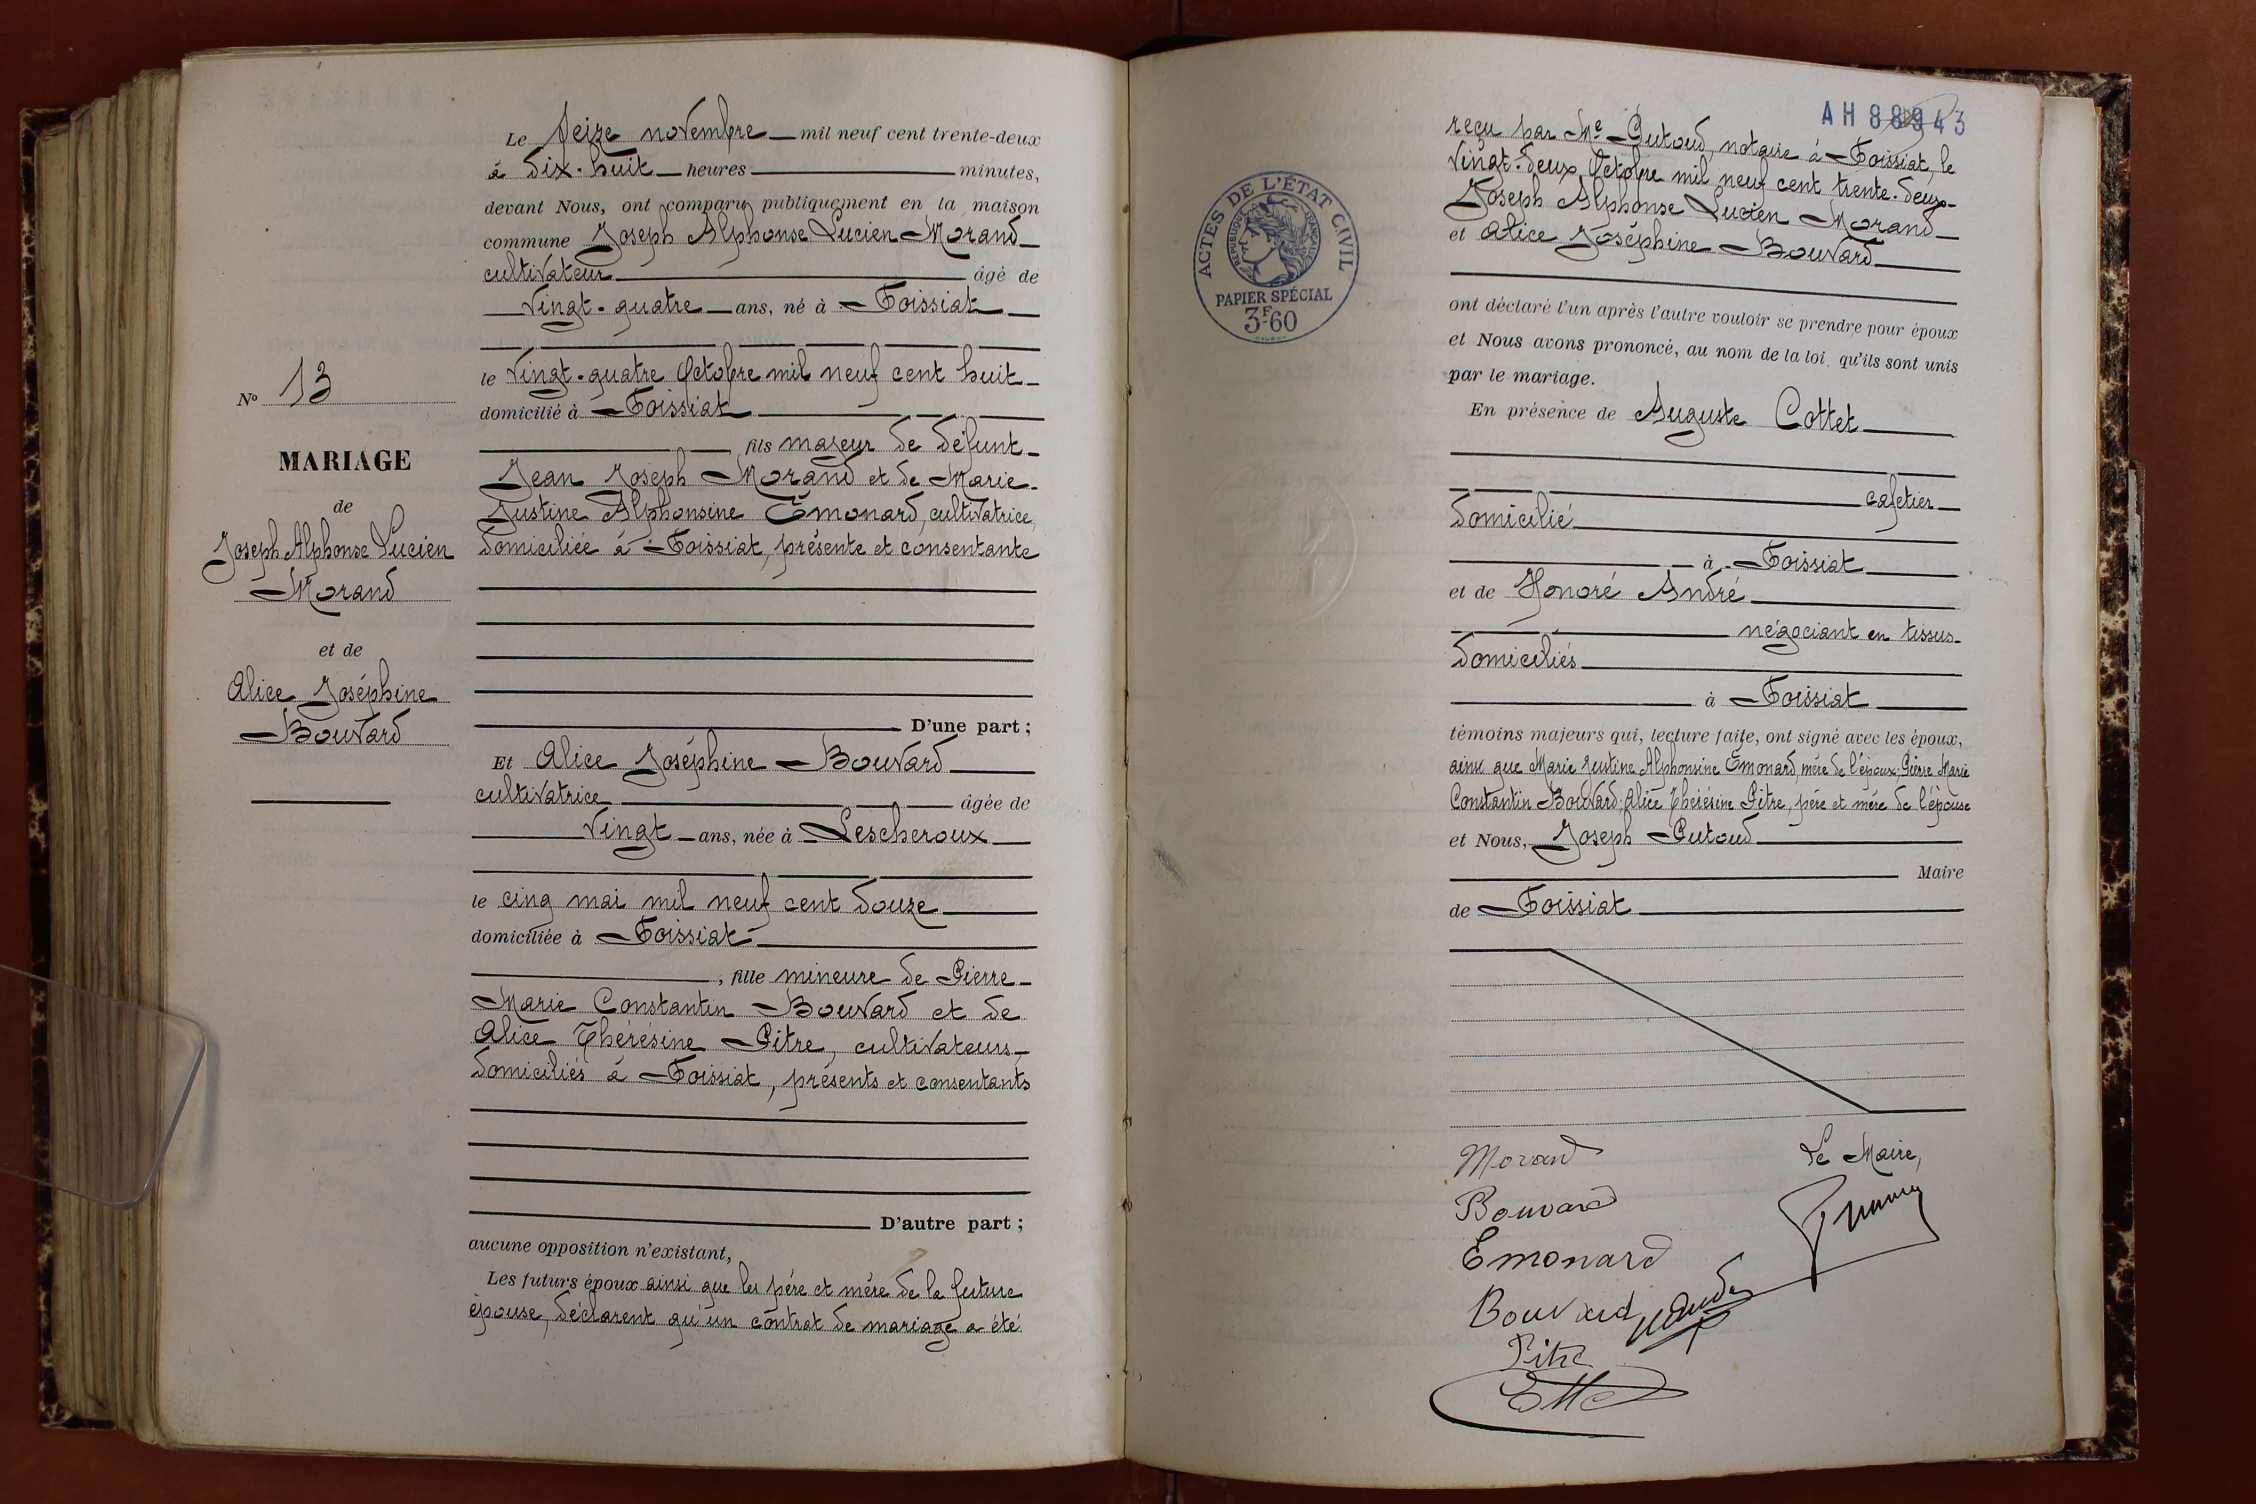 N° 13
MARIAGE
de
Joseph Alphonse Lucien
Morand
et de
Alice Joséphine
Bouvard
Le seize novembre mil neuf cent trente-deux
à dix-huit heures minutes,
devant Nous, ont comparu publiquement en la maison
commune Joseph Alphonse Lucien Morand
cultivateur âgé de
vingt-quatre ans, né à Foissiat
le vingt-quatre Octobre mil neuf cent huit
domicilié à Foissiat
fils majeur de défunt
Jean Joseph Morand et de Marie
Justine Alphonsine Emonard, cultivatrice,
domiciliée à Foissiat, présente et consentante
D'une part ;
Et Alice Joséphine Bouvard
cultivatrice âgée de
vingt ans, née à Lescheroux
le cinq mai mil neuf cent douze
domiciliée à Foissiat
, fille mineure de Pierre
Marie Constantin Bouvard et de
Alice Thérésine Pitre, cultivateurs
domiciliés à Foissiat, présents et consentants
D'autre part ;
aucune opposition n'existant,
Les futurs époux ainsi que les père et mère de la future
épouse, déclarent qu'un contrat de mariage a été
AH 88943
ACTES DE L'ÉTAT CIVIL
RÉPUBLIQUE FRANÇAISE
PAPIER SPÉCIAL
3F.60
reçu par Me Putoud, notaire à Foissiat, le
vingt-deux Octobre mil neuf cent trente-deux
Joseph Alphonse Lucien Morand
et Alice Joséphine Bouvard
ont déclaré l'un après l'autre vouloir se prendre pour époux
et Nous avons prononcé, au nom de la loi, qu'ils sont unis
par le mariage.
En présence de Auguste Cottet
cafetier
domicilié
à Foissiat
et de Honoré André
négociant en tissus
domiciliés
à Foissiat
témoins majeurs qui, lecture faite, ont signé avec les époux,
ainsi que Marie Justine Alphonsine Emonard, mère de l'époux; Pierre Marie
Constantin Bouvard, Alice Thérésine Pitre, père et mère de l'épouse
et Nous, Joseph Putoud
Maire
de Foissiat
Morand
Le Maire,
Bouvard
Emonard
Bouvard
Pitre